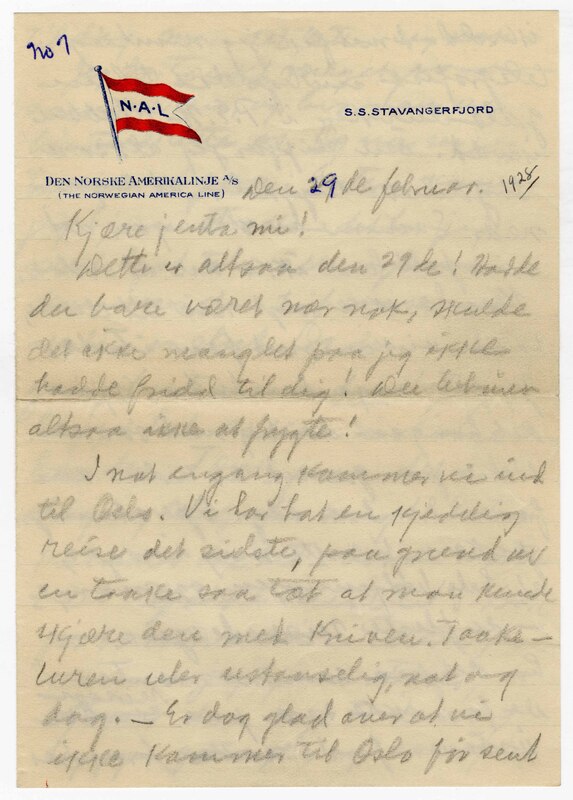 No 7
N·A·L
S.S. STAVANGERFJORD
DEN NORSKE AMERIKALINJE A/S
(THE NORWEGIAN AMERICA LINE)
Den 29 de februar. 1928/
Kjære jenta mi!
Dette er altsaa den 29 de! Hadde
du bare været nær nok, skulde
det ikke manglet paa jeg ikke
hadde fridd til dig! Du behøver
altsaa ikke at frygte!
I nat engang kommer vi ind
til Oslo. Vi har hat en kjedelig
reise det sidste, paa grund av
en taake saa tæt at man kunde
skjære den med kniven. Taake-
luren uler ustanselig, nat og
dag. — Er dog glad over at vi
ikke kommer til Oslo før sent